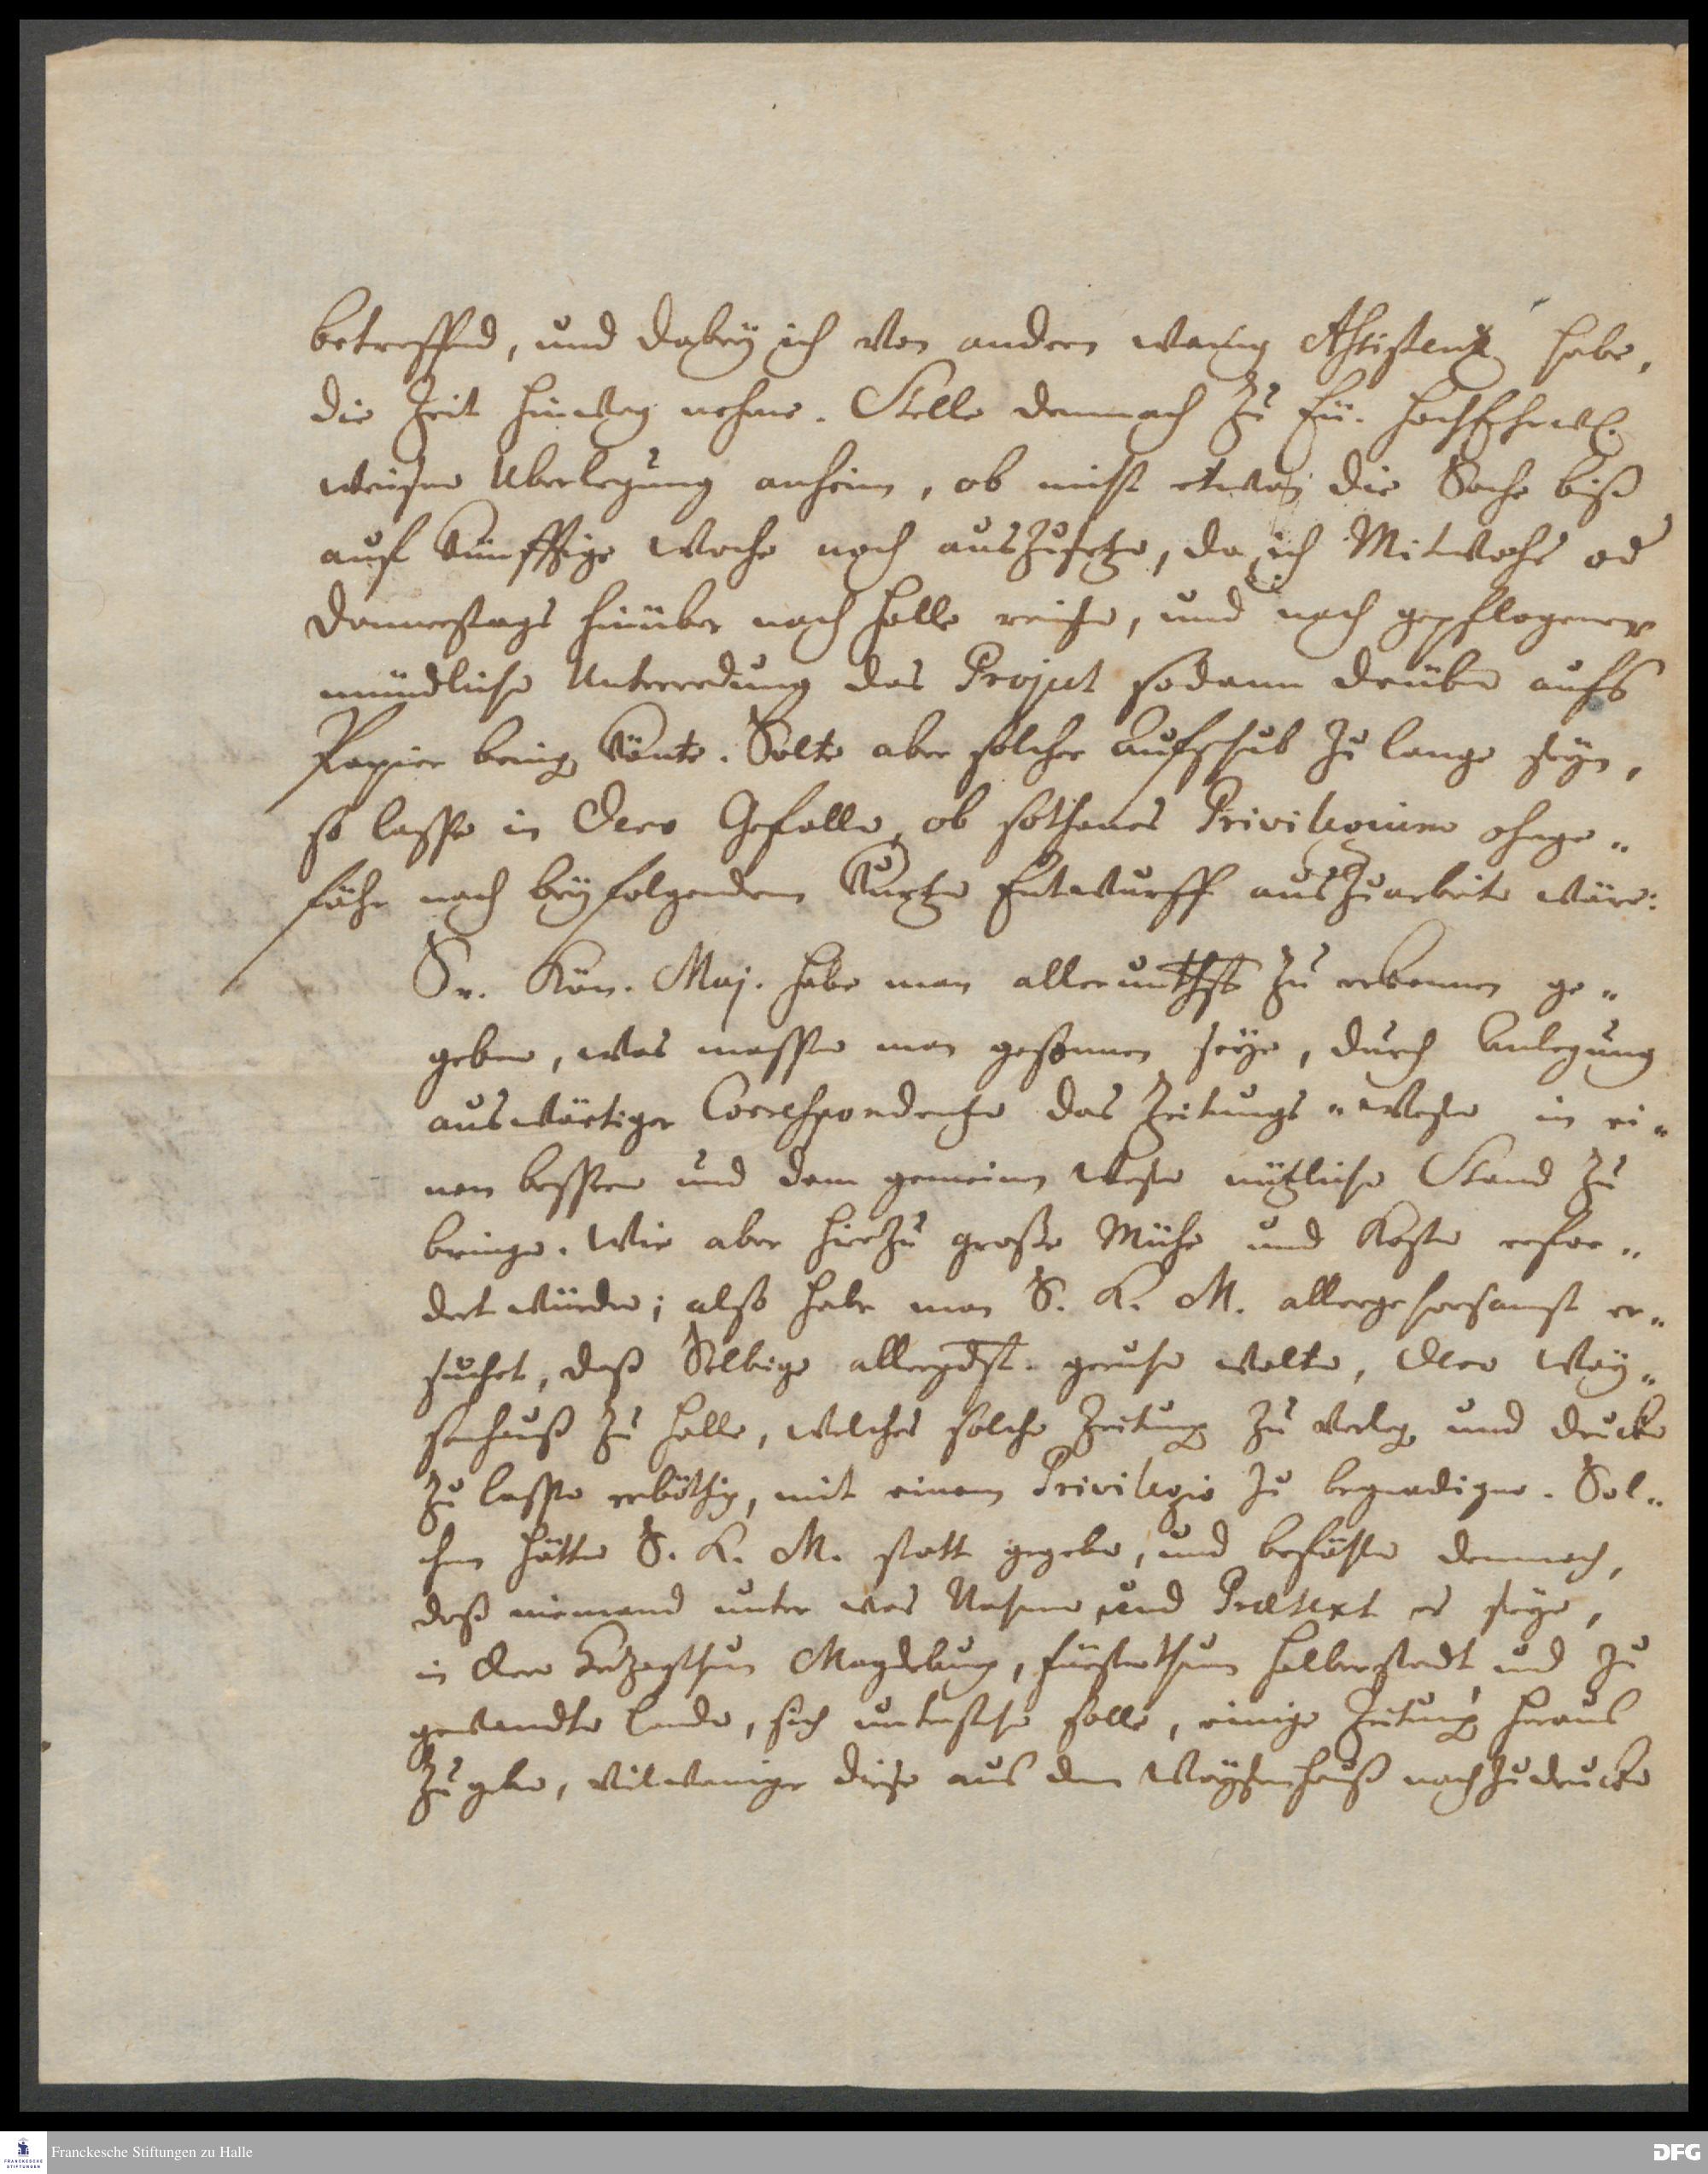 betreffend, und dabey ich von andern wenig Assistentz habe,
die Zeit hinweg nehme. Stelle demnach zu Eü. HochEhrw.
weisen Uberlegung anheim, ob nicht etwan die Sache biß
auf künfftige Woche noch auszusetzen, da ich Mitwochs od
Donnerstags hinüber nach Halle reisen, und nach gepflogener
mündlichen Unterredung das Project sodann drüben aufs
Papier bring könte. Solte aber solcher Aufschub zu lange seyn,
so lasse in Dero Gefallen, ob sothanes Privilegium ohnge-
fähr nach beyfolgendem kurtzen Entwurff auszuarbeiten wäre:
Sr. Kön. Maj. habe man allerunthst zu erkennen ge-
geben, was massen man gesonnen seye, durch Anlegung
auswärtiger Correspondenzen das Zeitungs-Wesen in ei-
nen bessern und dem gemeinen Wesen nützlichen Stand zu
bringen. Wie aber hierzu große Mühe und Kosten erfor-
dert würden; also habe man S. K. M. allergehorsamst er-
suchet, daß Selbige allergdst. geruhen wolten, Dero Way-
senhauß zu Halle, welches solche Zeitung zu verleg und drucken
zu lassen erböthig, mit einem Privilegio zu begnadigen. Sol-
chem hätten S. K. M. statt gegeben, und befähle demnach,
daß niemand unter was Nahmen und Prætext es seye,
in Dero Hertzogthum Magdeburg, Fürstenthum Halberstadt und zu
gewandten Landen, sich unterstehen solle, einige Zeitung heraus
zu geben, vielweniger diese aus dem Waysenhauß nachzudrucken
Franckesche Stiftungen zu Halle
FRANCKESCHE
STIFTUNGEN
DFG